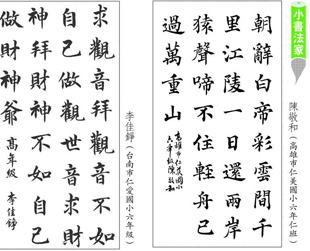 小書法家
陳敬和（高雄市仁美國小六年仁班）
朝辭白帝彩雲間千
里江陵一日還兩岸
猿聲啼不住輕舟已
過萬重山
高雄市仁美國小
陳敬和
李佳錚（台南市仁愛國小六年級）
求觀音拜觀音不如
自己做觀世音求財
神拜財神不如自己
做財神爺
高年級 李佳錚